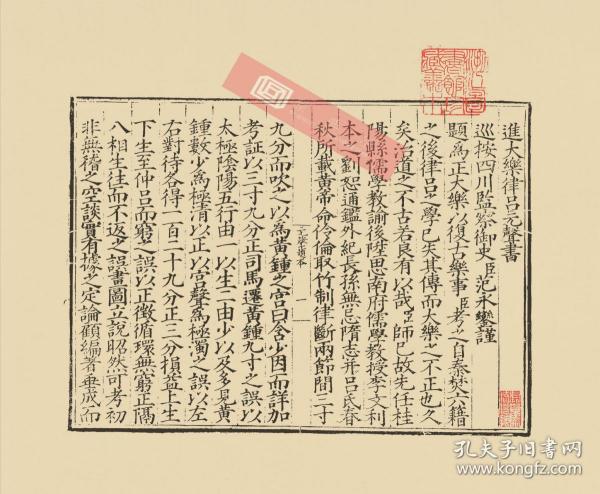 進大樂律呂元聲書
巡按四川監察御史臣范永鑾謹
題爲正大樂以復古樂事臣考之自秦焚六籍
之後律呂之學已失其傳而大樂之不正也久
矣治道之不古若良有以哉臣師已故先任桂
陽縣儒學教諭後陞思南府儒學教授李文利
本之劉恕通鑑外紀長孫無忌隋志并呂氏春
秋所載黃帝命伶倫取竹制律斷兩節間三寸
一
九分而吹之以爲黃鍾之宮曰含少因而詳加
考証以三寸九分正司馬遷黃鍾九寸之誤以
太極陰陽五行由一以生二由少以及多見黃
鍾數少爲極清以正以宮聲爲極濁之誤以左
右對待各得一百二十九分正三分損益上生
下生至仲呂而窮之誤以正徵循環無窮正隔
八相生往而不返之誤畫圖立說昭然可考初
非無稽之空談實有據之定論顧編著垂成而
孔夫子旧书网
www.kongfz.com